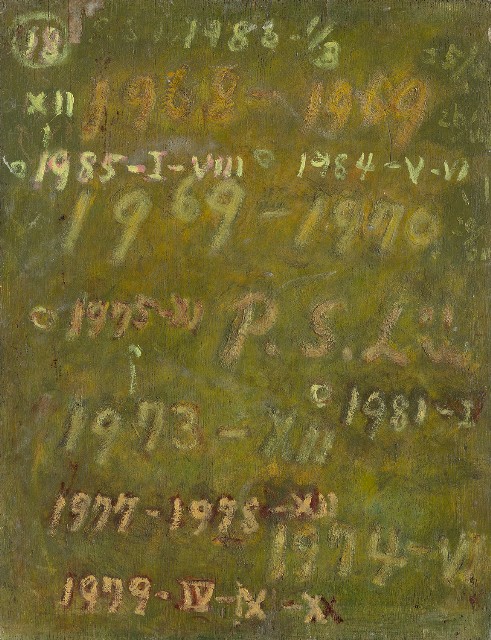 18 1983-1/3
1968-1969
XII
1985-I-VIII 1984-V-VI
1969-1970
1975-XI P. S. Lü
1981-I
1973-XII
1977-1975-XII
1974-VI
1979-IV-IX-XX